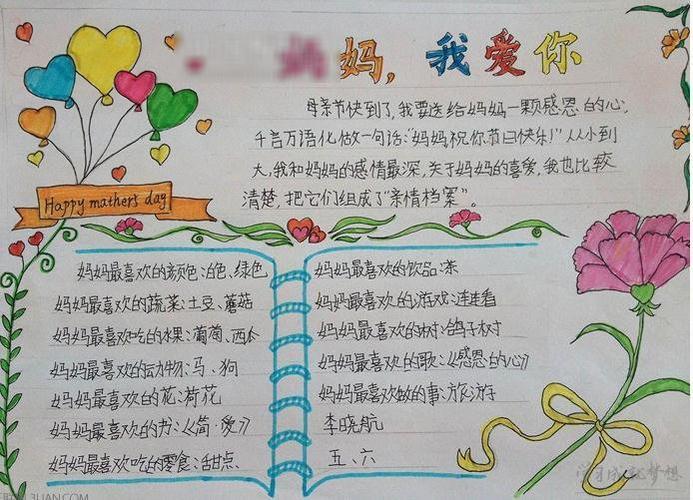 妈,我爱你
母亲节快到了,我要送给妈妈一颗感恩的心,
千言万语化做一句话:“妈妈祝你节日快乐!”从小到
大,我和妈妈的感情最深,关于妈妈的喜爱,我也比较
清楚,把它们组成了“亲情档案”。
Happy mathers day
妈妈最喜欢的颜色:白色、绿色
妈妈最喜欢的蔬菜:土豆、蘑菇
妈妈最喜欢吃的水果:葡萄、西瓜
妈妈最喜欢的动物:马、狗
妈妈最喜欢的花:荷花
妈妈最喜欢的书:《简·爱》
妈妈最喜欢吃的零食:甜点、
妈妈最喜欢的饮品:茶
妈妈最喜欢的游戏:连连看
妈妈最喜欢的树:鸽子树
妈妈最喜欢的歌:《感恩的心》
妈妈最喜欢做的事:旅游
李晓航
五、六